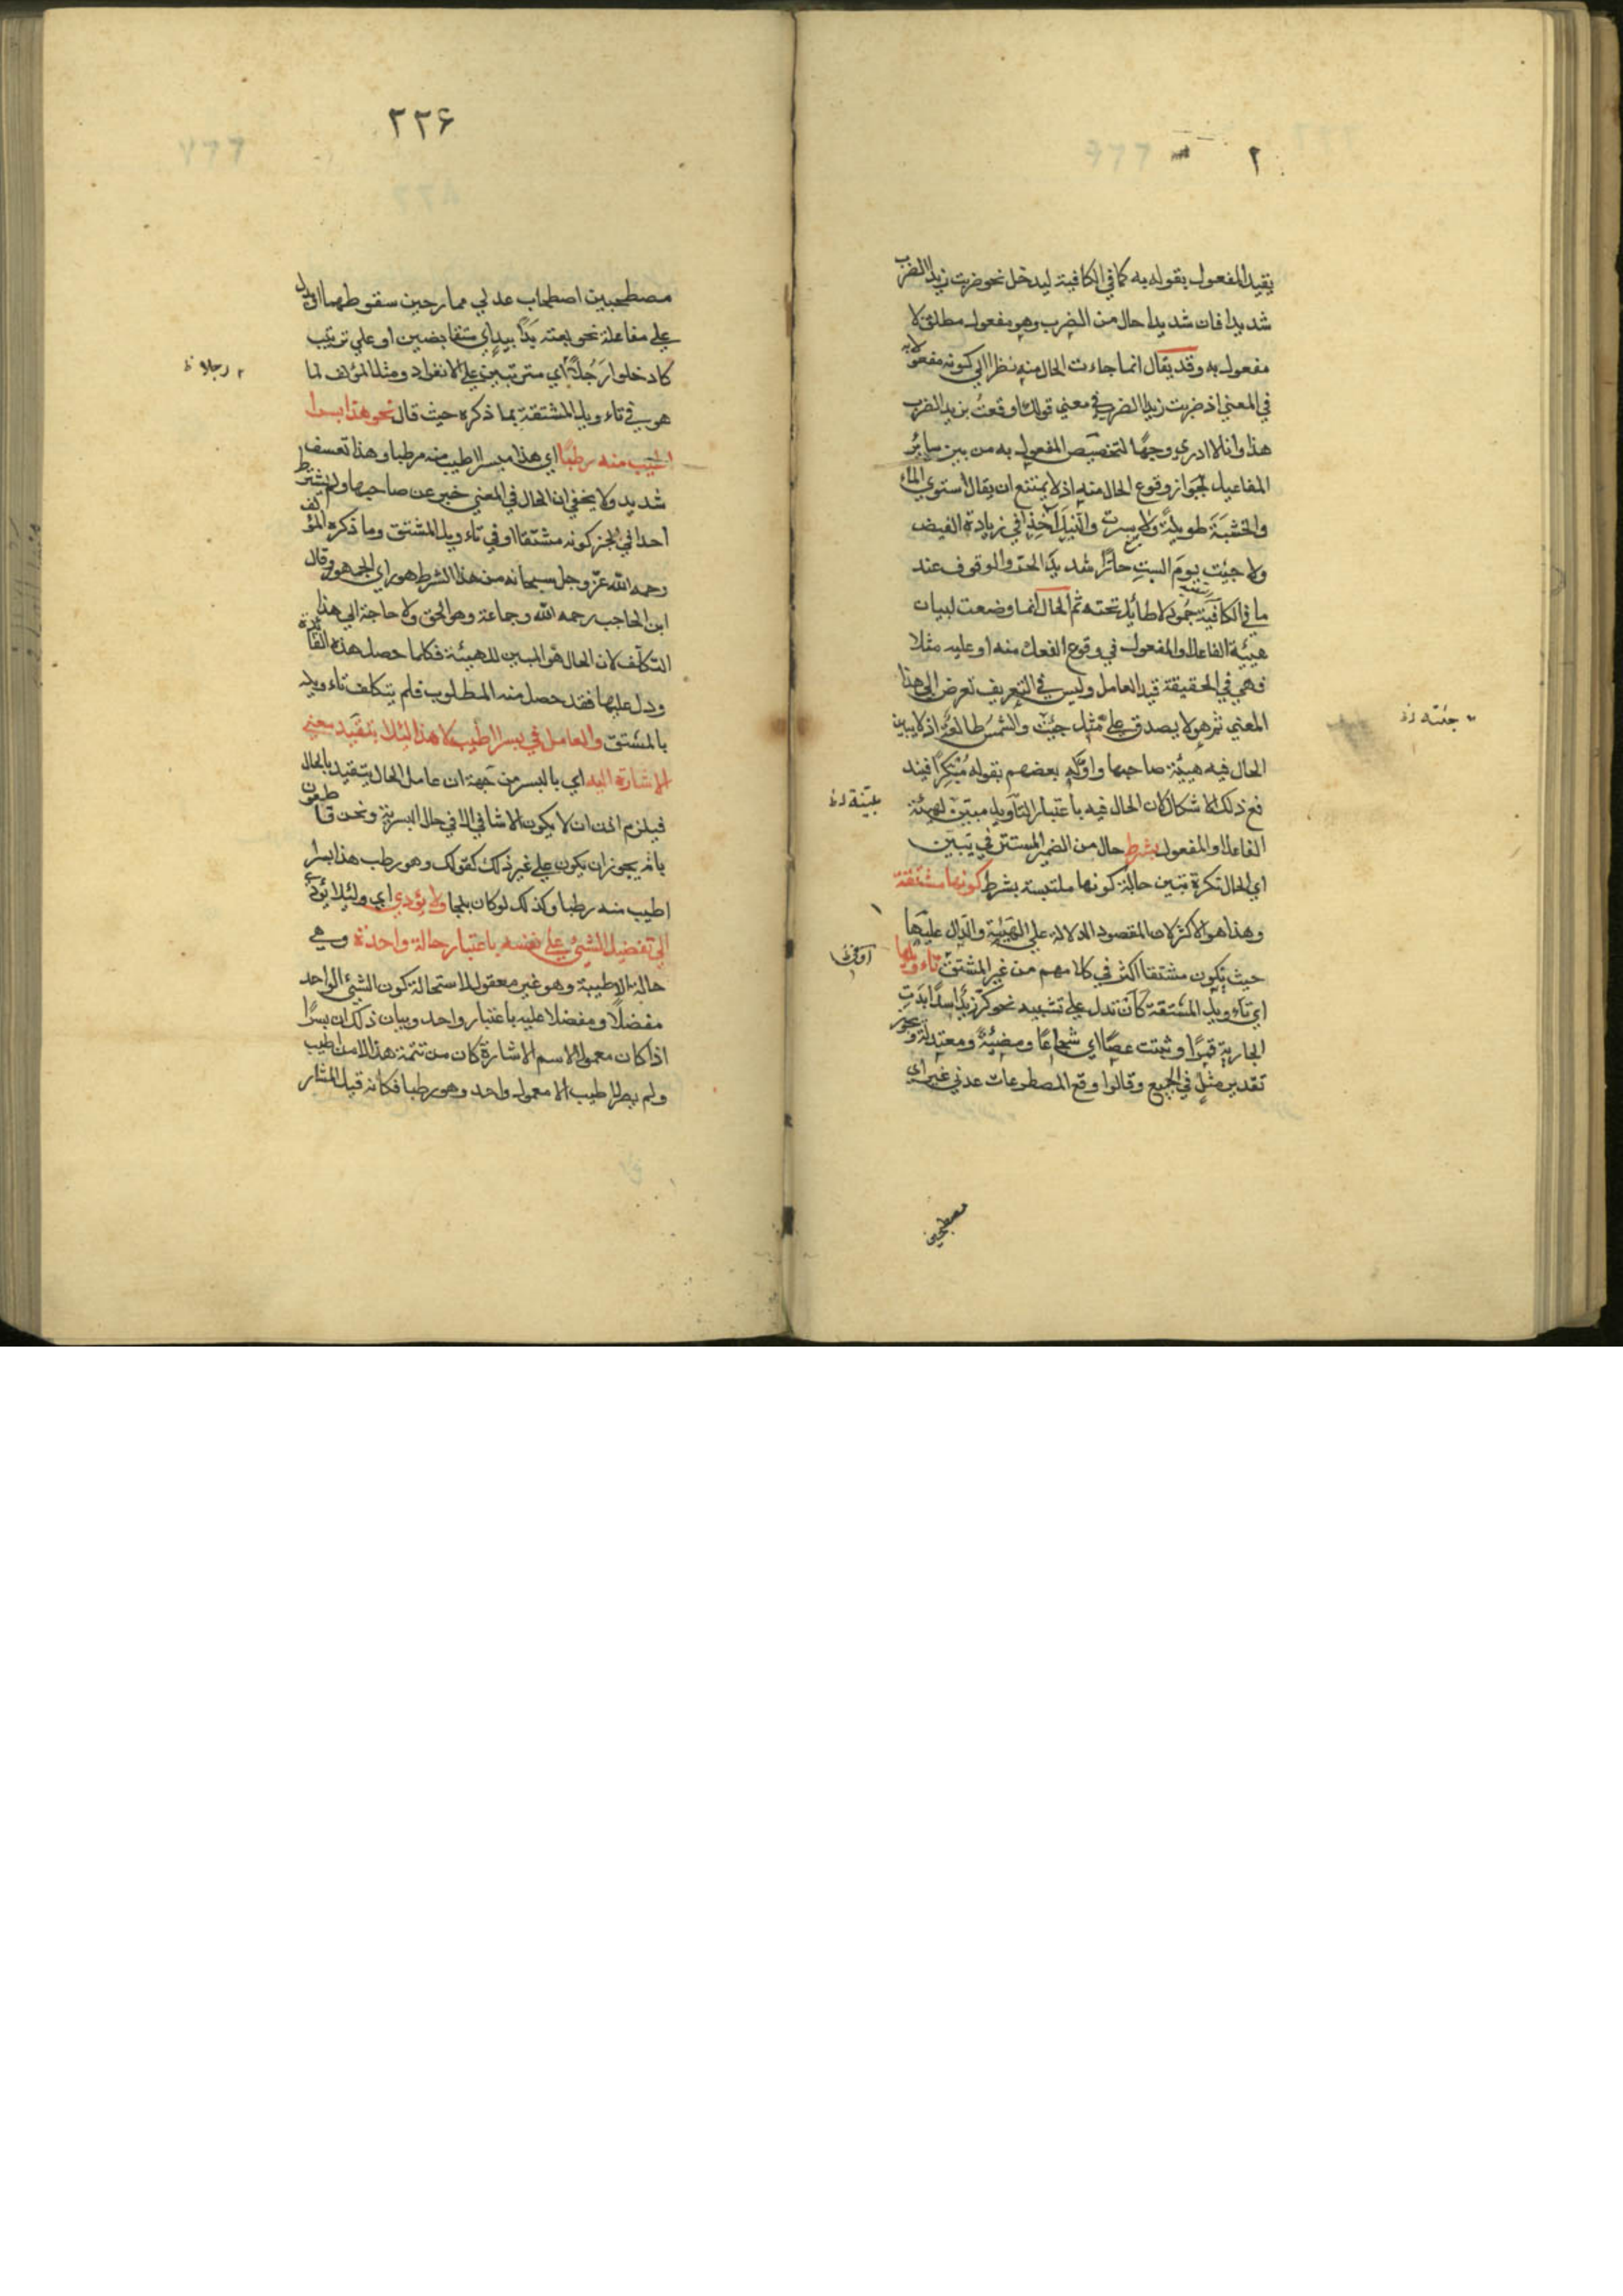 ٢
يقيد المفعول بقوله به كما في الكافية ليدخل نحو ضربت زيدا الضرب
شديدا فان شديدا حال من الضرب وهو مفعول مطلق لا
مفعول به وقد يقال انما جاءت الحال منه نظرا الي كونه مفعولا به
في المعني اذ ضربت زيدا الضرب في معني قولك اوقعت بزيد الضرب
هذا وانا لا ادري وجها لتخصيص المفعول به من بين ساير
المفاعيل لجواز وقوع الحال منه اذ لا يمتنع ان يقال استوي الماء
والخشبة طويلة ولا سرت والنيل آخذا في زيادة الفيض
ولا جئت يوم السبت حارا شديد الحر والوقوف عند
ما في الكافية جمود لا طايل تحته ثم الحال انما وضعت لبيان
هيئة الفاعل او المفعول في وقوع الفعل منه او عليه مثلا
فهي في الحقيقة قيد العامل وليس في التعريف تعرض الي هذا
المعني ثم هو لا يصدق علي مثل جئت والشمس طالعة اذ لا يبين
جئته
الحال فيه هيئة صاحبها واوله بعضهم بقوله مبكرا فيند
فع ذلك الاشكال لان الحال فيه باعتبار التأويل مبين لهيئة
مبينة
الفاعل او المفعول بشرط حال من الضمير المستتر في تبين
اي الحال نكرة تبين حالة كونها ملتبسة بشرط كونها مشتقة
وهذا هو الاكثر لان المقصود الدلالة علي الهيئة والدال عليها
حيث يكون مشتقا اكثر في كلامهم من غير المشتق تاءويلها
او في
اي تاءويل المشتقة كان تدل علي تشبيه نحو كر زيد اسدا بدت
الجارية قمرا وثنت غصنا اي شجاعا ومضيئة ومعتدلة ويجوز
تقدير مثل في الجميع وقالوا وقع المصطرعان عدلي عير اي
مصطحبين
٢٢۶
مصطحبين اصطحاب عدلي حمار حين سقوطهما او يدل
علي مفاعلة نحو بعته يدا بيد اي متقابضين او علي ترتيب
كادخلوا رجلا اي مترتبين علي الانفراد ومثل المؤلف لما
رجلا
هو في تاءويل المشتقة بما ذكره حيث قال نحو هذا بسرا
اطيب منه رطبا اي هذا مبسرا اطيب منه مرطبا وهذا تعسف
شديد ولا يخفي ان الحال في المعني خبر عن صاحبها ولم يشترط
احد في الخبر كونه مشتقا او في تاءويل المشتق وما ذكره المؤلف
رحمه الله عز وجل سبحانه من هذا الشرط هو راي الجمهور وقال
ابن الحاجب رحمه الله وجماعة وهو الحق ولا حاجة الي هذا
التكلف لان الحال هو المبين للهيئة فكلما حصل هذه الفائدة
ودل عليها فقد حصل منه المطلوب فلم يتكلف تاءويله
بالمشتق والعامل في بسرا اطيب لا هذا لئلا يتقيد معني
الاشارة اليه اي بالبسر من جهة ان عامل الحال يتقيد بالحال
فيلزم اذن ان لا يكون الاشارة الا في حال البسرية ونحن قاطعون
بانه يجوز ان يكون علي غير ذلك كقولك وهو رطب هذا بسرا
اطيب منه رطبا وكذلك لو كان بلحا ولا يؤدي اي ولئلا يؤدي
الي تفضيل الشيئ علي نفسه باعتبار حالة واحدة وهي
حالة الاطيبة وهو غير معقول لاستحالة كون الشيئ الواحد
مفضلا ومفضلا عليه باعتبار واحد وبيان ذلك ان بسرا
اذا كان معمولا لاسم الاشارة كان من تتمة هذا لا من اطيب
ولم يصر لاطيب الا معمول واحد وهو رطبا فكانه قيل المشار